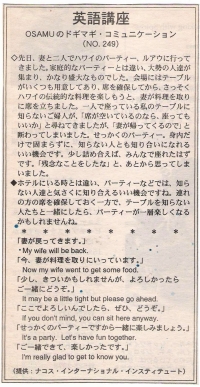 英語講座
OSAMUのドギマギ・コミュニケーション
(NO. 249)
◇先日、妻と二人でハワイのパーティー、ルアウに行って
きました。家庭的なパーティーとは違い、大勢の人達が
集まり、かなり盛大なものでした。会場にはテーブル
がいくつも用意してあり、席を確保してから、さっそく
ハワイの伝統的な料理を楽しもうと、妻が料理を取り
に席を立ちました。一人で座っている私のテーブルに
知らないご婦人が、「席が空いているのなら、座っても
いいか」と尋ねてきましたが、「妻が帰ってくるので」と
断わってしまいました。せっかくのパーティー、身内だ
けで固まらずに、知らない人とも知り合いになれる
いい機会です。少し詰めえば、みんなで座れたはず
です。「残念なことをしたな」と、あとから思ってしま
いました。
◆ホテルにいる時とは違い、パーティーなどでは、知ら
ない人達と気さくに知り合えるいい機会ですね。連れ
の方の席を確保しておく一方で、テーブルを知らない
人たちと一緒にしたら、パーティーが一層楽しくなる
かもしれませんね。
* * * * * * * *
「妻が戻ってきます。」
・My wife will be back.
「今、妻が料理を取りにいっています。」
Now my wife went to get some food.
「少し、きついかもしれませんが、よろしかったら
ご一緒にどうぞ。」
It may be a little tight but please go ahead.
「ここでよろしいんでしたら、ぜひ、どうぞ。」
If you don't mind, you can sit here anyway.
「せっかくのパーティーですから一緒に楽しみましょう。」
It's a party. Let's have fun together.
「ご一緒できて、楽しかったです。」
I'm really glad to get to know you.
(提供:ナコス・インターナショナル・インスティテュート)